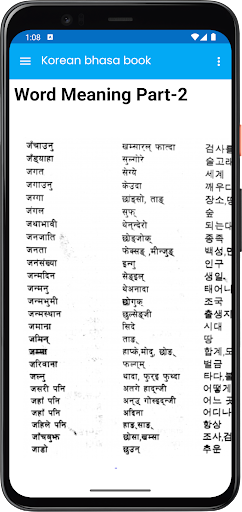 1:08
Korean bhasa book
Word Meaning Part-2
जँचाउनु खम्सारल् फाल्दा 검사를
जँड्याहा सुल्गोरे 술고래
जगत सेग्ये 세계
जगाउनु केउदा 깨우다
जग्गा छाङ्सो, ताङ् 장소,땅
जंगल सुफ् 숲
जथाभावी 되는대
जनजाति छोङ्जोक् 종족
जनता पेक्सङ् ,मीन्जुङ् 백성,민
जनसंख्या इन्गु 인구
जन्मदिन सेङ्इल् 생일
जन्मनु थेअनादा 태어나
जन्मभूमी छोगुक् 조국
जन्मस्थान छुल्सेङ्जी 출생지
जमाना सिदे 시대
जमिन् ताङ् 땅
जम्मा हाप्के,मोदु, छोङ् 합계,모
जरिवाना फल्गुम् 벌금
जल्नु थादा, फुरुइ फुथ्दा 타다,불
जसरी पनि 어떻게
जहाँ पनि 어느 곳
जहाँ पनि अदिना 어디나
जहिले पनि हाङ्साङ् 항상
जाँचबुझ छोसा,खम्सा 조사,검
जाडो छुउन् 추운